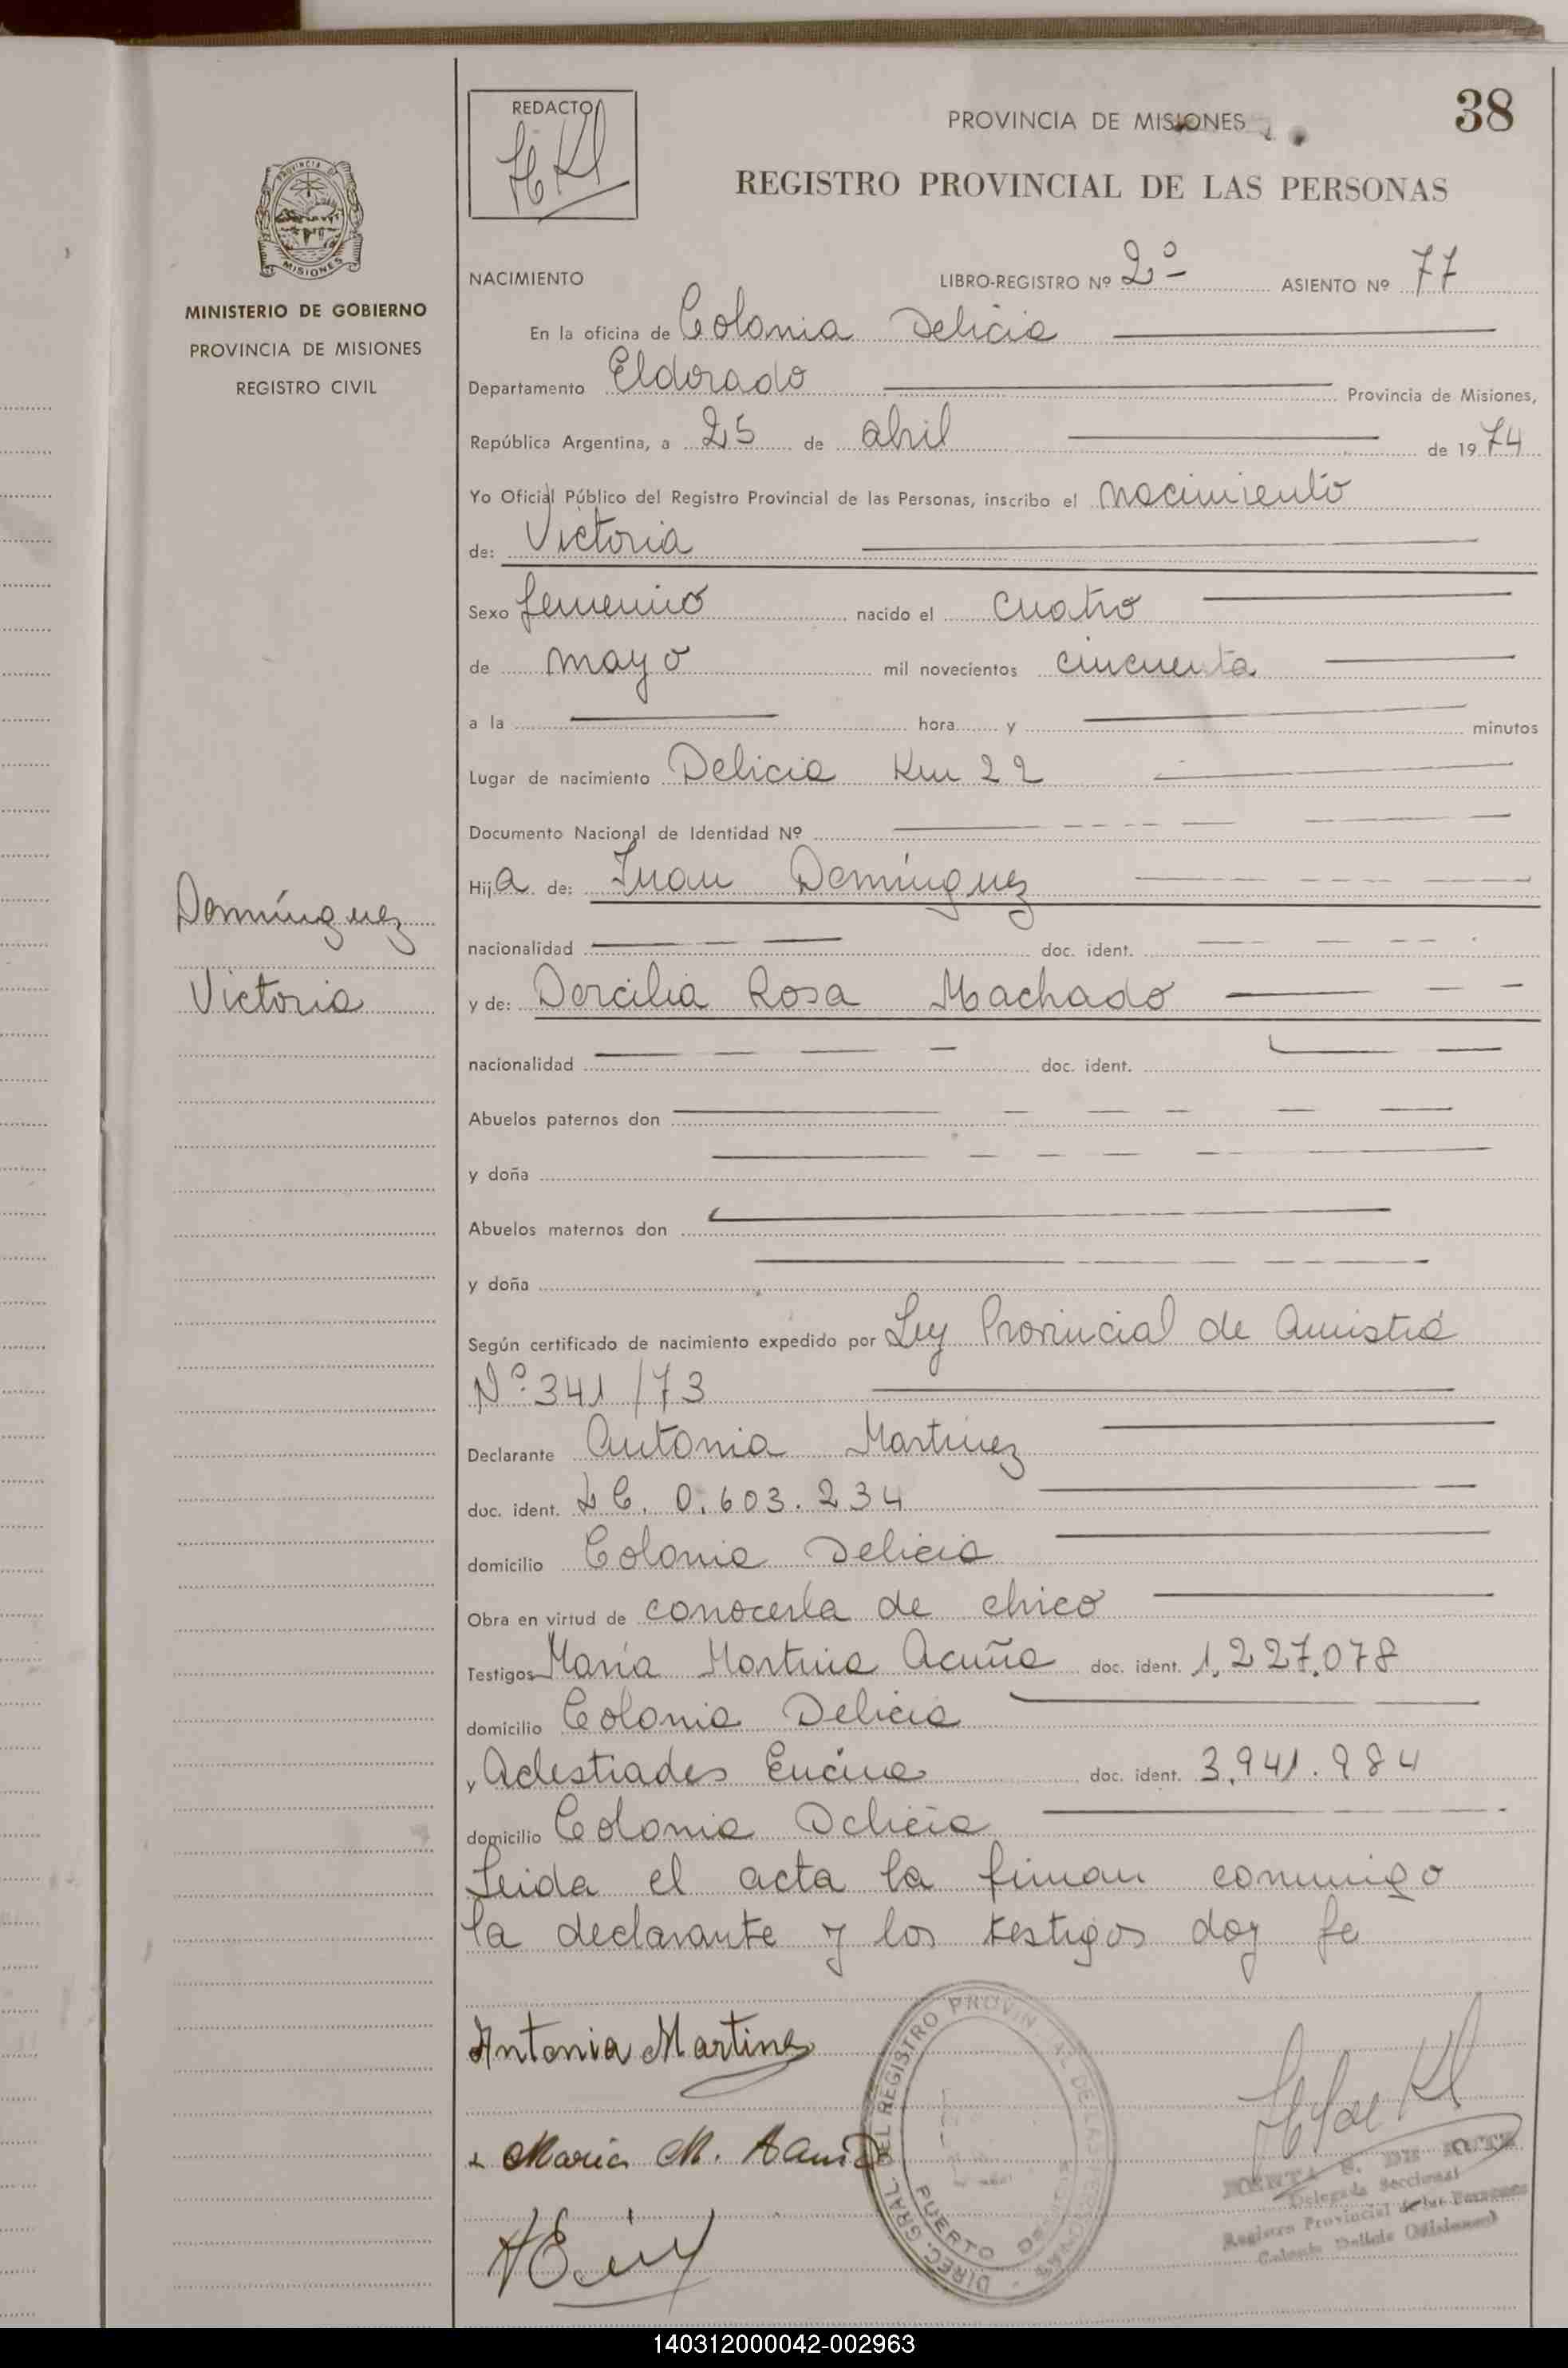 REDACTO
PROVINCIA DE MISIONES
38
REGISTRO PROVINCIAL DE LAS PERSONAS
PROVINCIA DE
MISIONES
MINISTERIO DE GOBIERNO
PROVINCIA DE MISIONES
REGISTRO CIVIL
NACIMIENTO LIBRO-REGISTRO Nº 2º ASIENTO Nº 77
En la oficina de Colonia Delicia
Departamento Eldorado Provincia de Misiones,
República Argentina, a 25 de abril de 1974
Yo Oficial Público del Registro Provincial de las Personas, inscribo el nacimiento
de: Victoria
Sexo femenino nacido el cuatro
de mayo mil novecientos cincuenta
a la hora y minutos
Lugar de nacimiento Delicia Km 22
Documento Nacional de Identidad Nº
Hija de: Juan Domínguez
Domínguez
nacionalidad doc. ident.
Victoria
y de: Dorcilia Rosa Machado
nacionalidad doc. ident.
Abuelos paternos don
y doña
Abuelos maternos don
y doña
Según certificado de nacimiento expedido por Ley Provincial de Amistía
Nº 341/73
Declarante Antonia Martinez
doc. ident. LC. 0.603.234
domicilio Colonia Delicia
Obra en virtud de conocerla de chico
Testigos María Martina Acuña doc. ident. 1.227.078
domicilio Colonia Delicia
y Aclestiades Encina doc. ident. 3.941.984
domicilio Colonia Delicia
Leida el acta la firman conmigo
la declarante y los testigos doy fe
Antonia Martinez
Maria M.
DIREC. GRAL. DEL REGISTRO PROVINCIAL DE LAS PERSONAS
PUERTO
Delegada Seccional
Registro Provincial de las Personas
Colonia Delicia (Misiones)
140312000042-002963